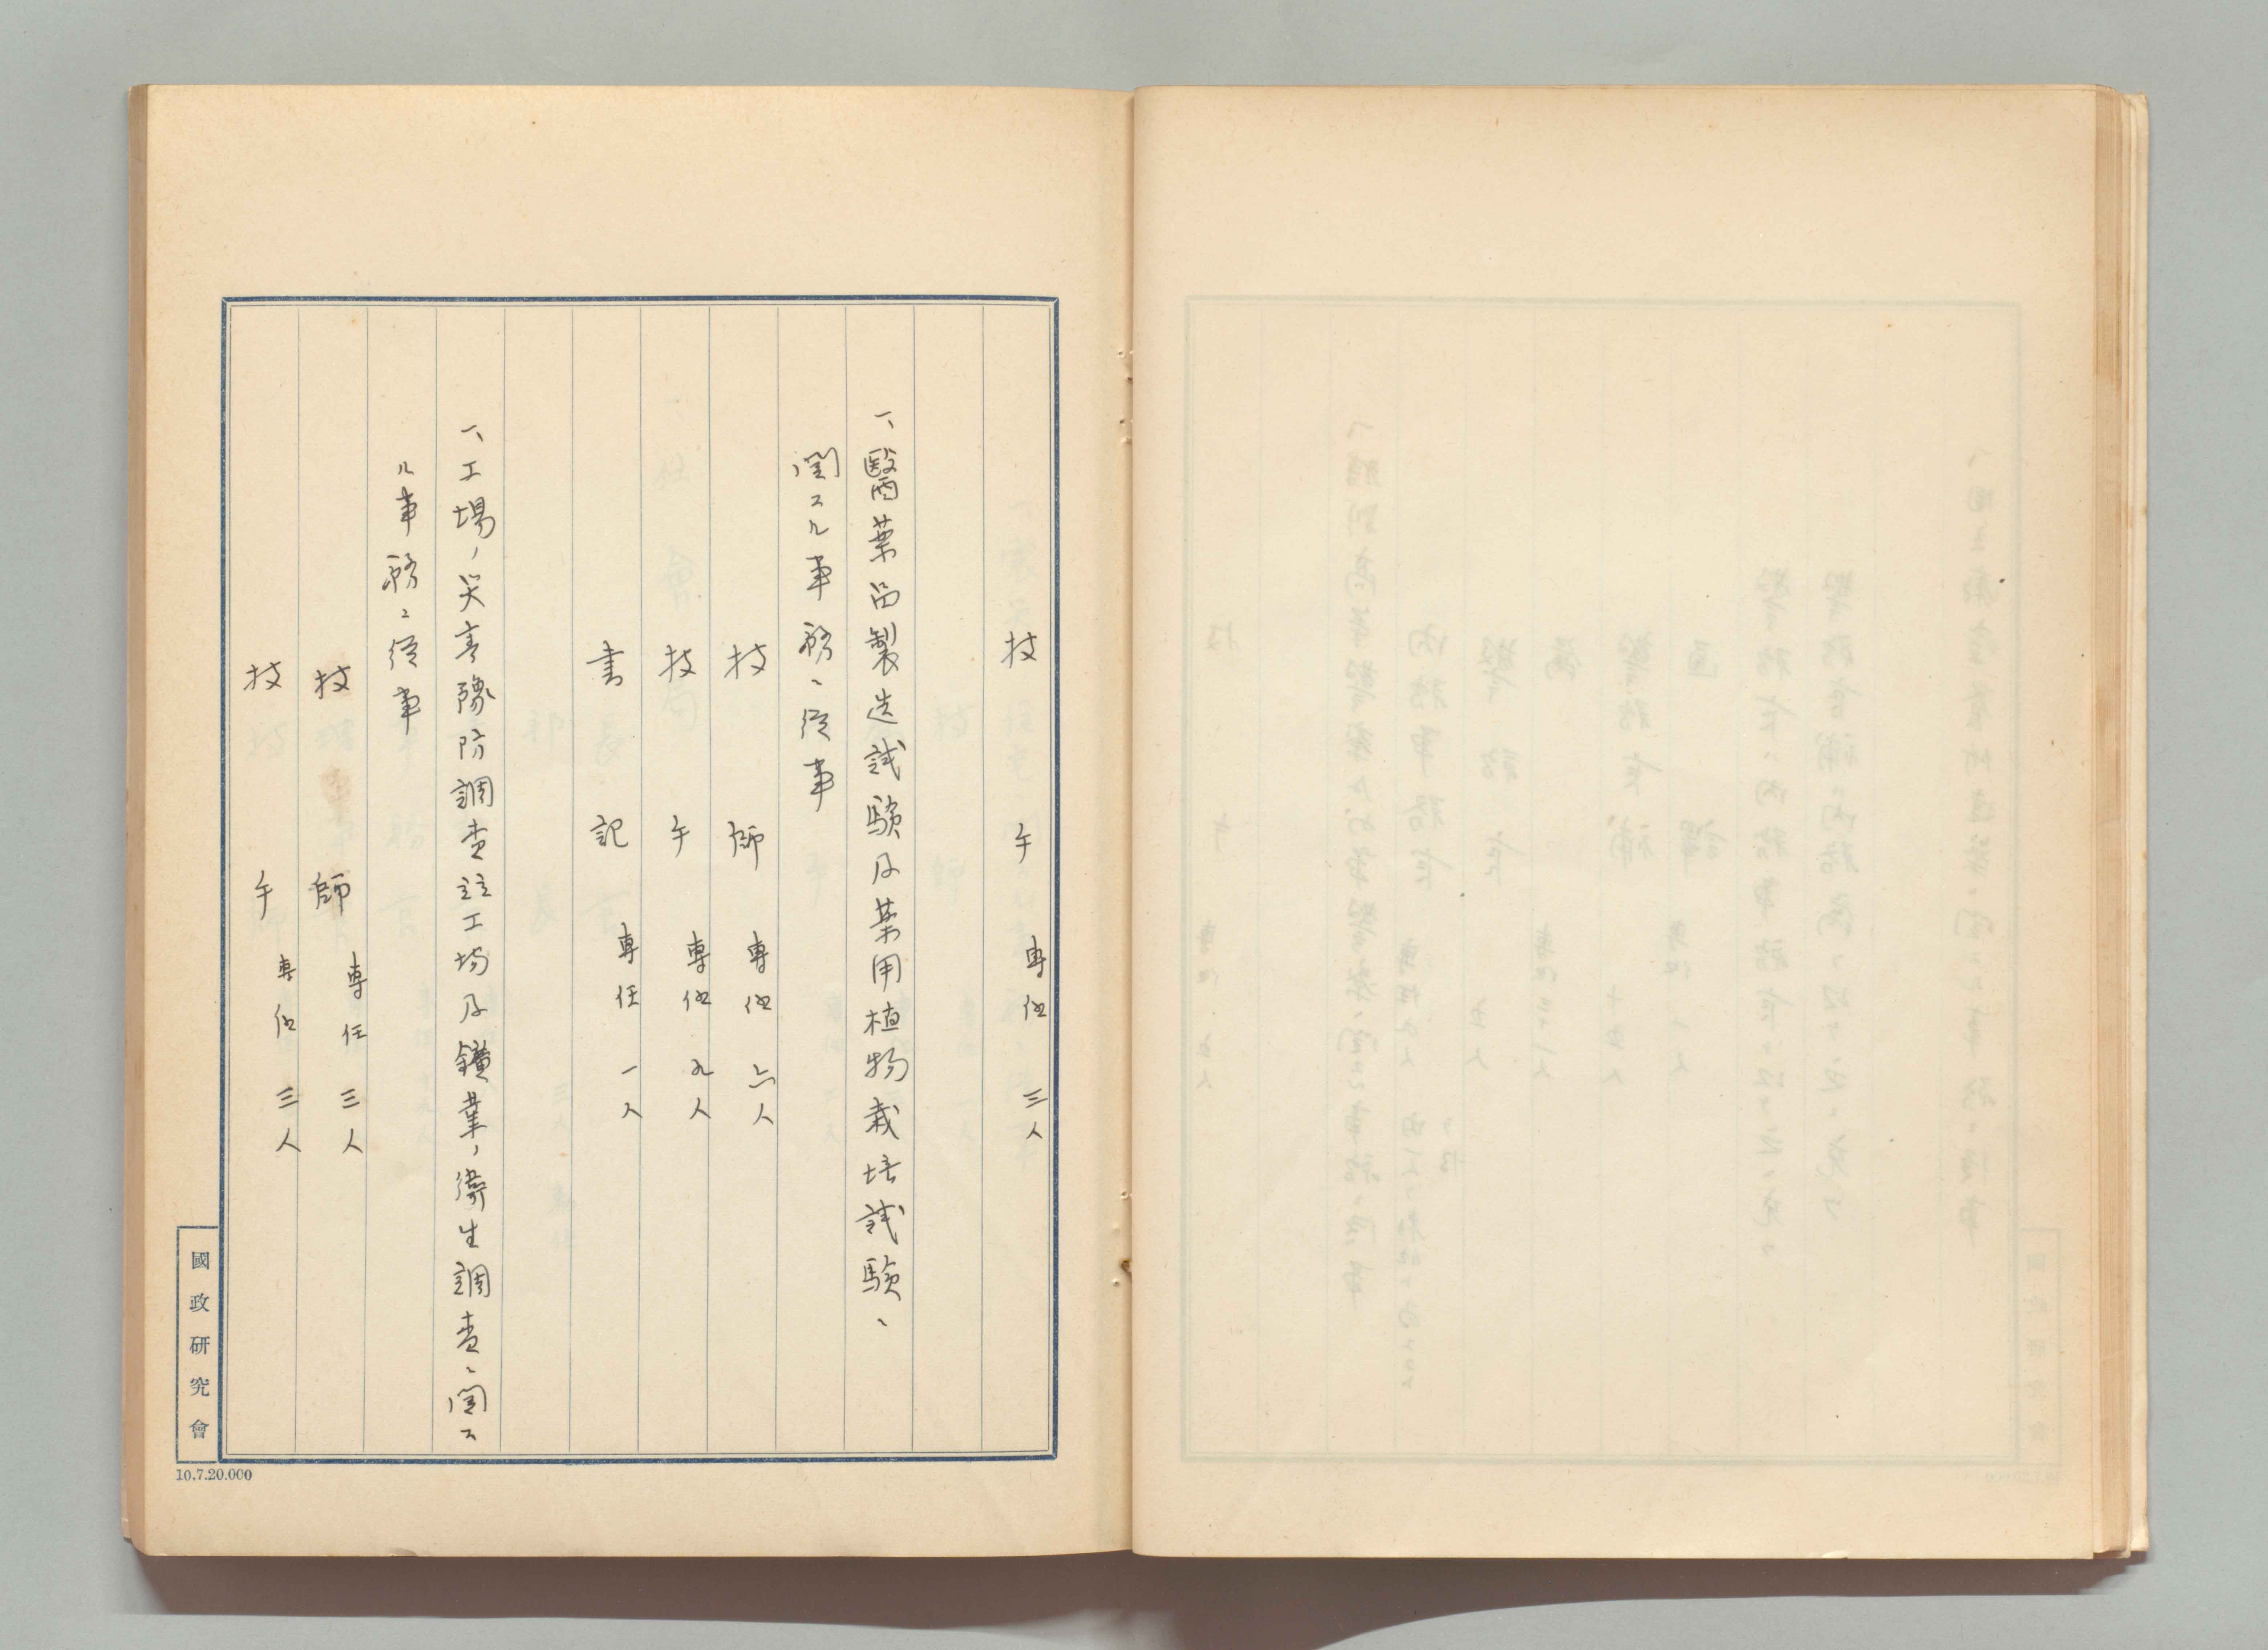 技手 専任 三人
一、醫薬品製造試験及薬用植物栽培試験、
関スル事務ニ従事
技師 専任 六人
技手 専任 九人
書記 専任 一人
一、工場ノ災害豫防調査並工場及鑛業ノ衛生調査ニ関ス
ル事務ニ従事
技師 専任 三人
技手 専任 三人
國政研究會
10.7.20.000